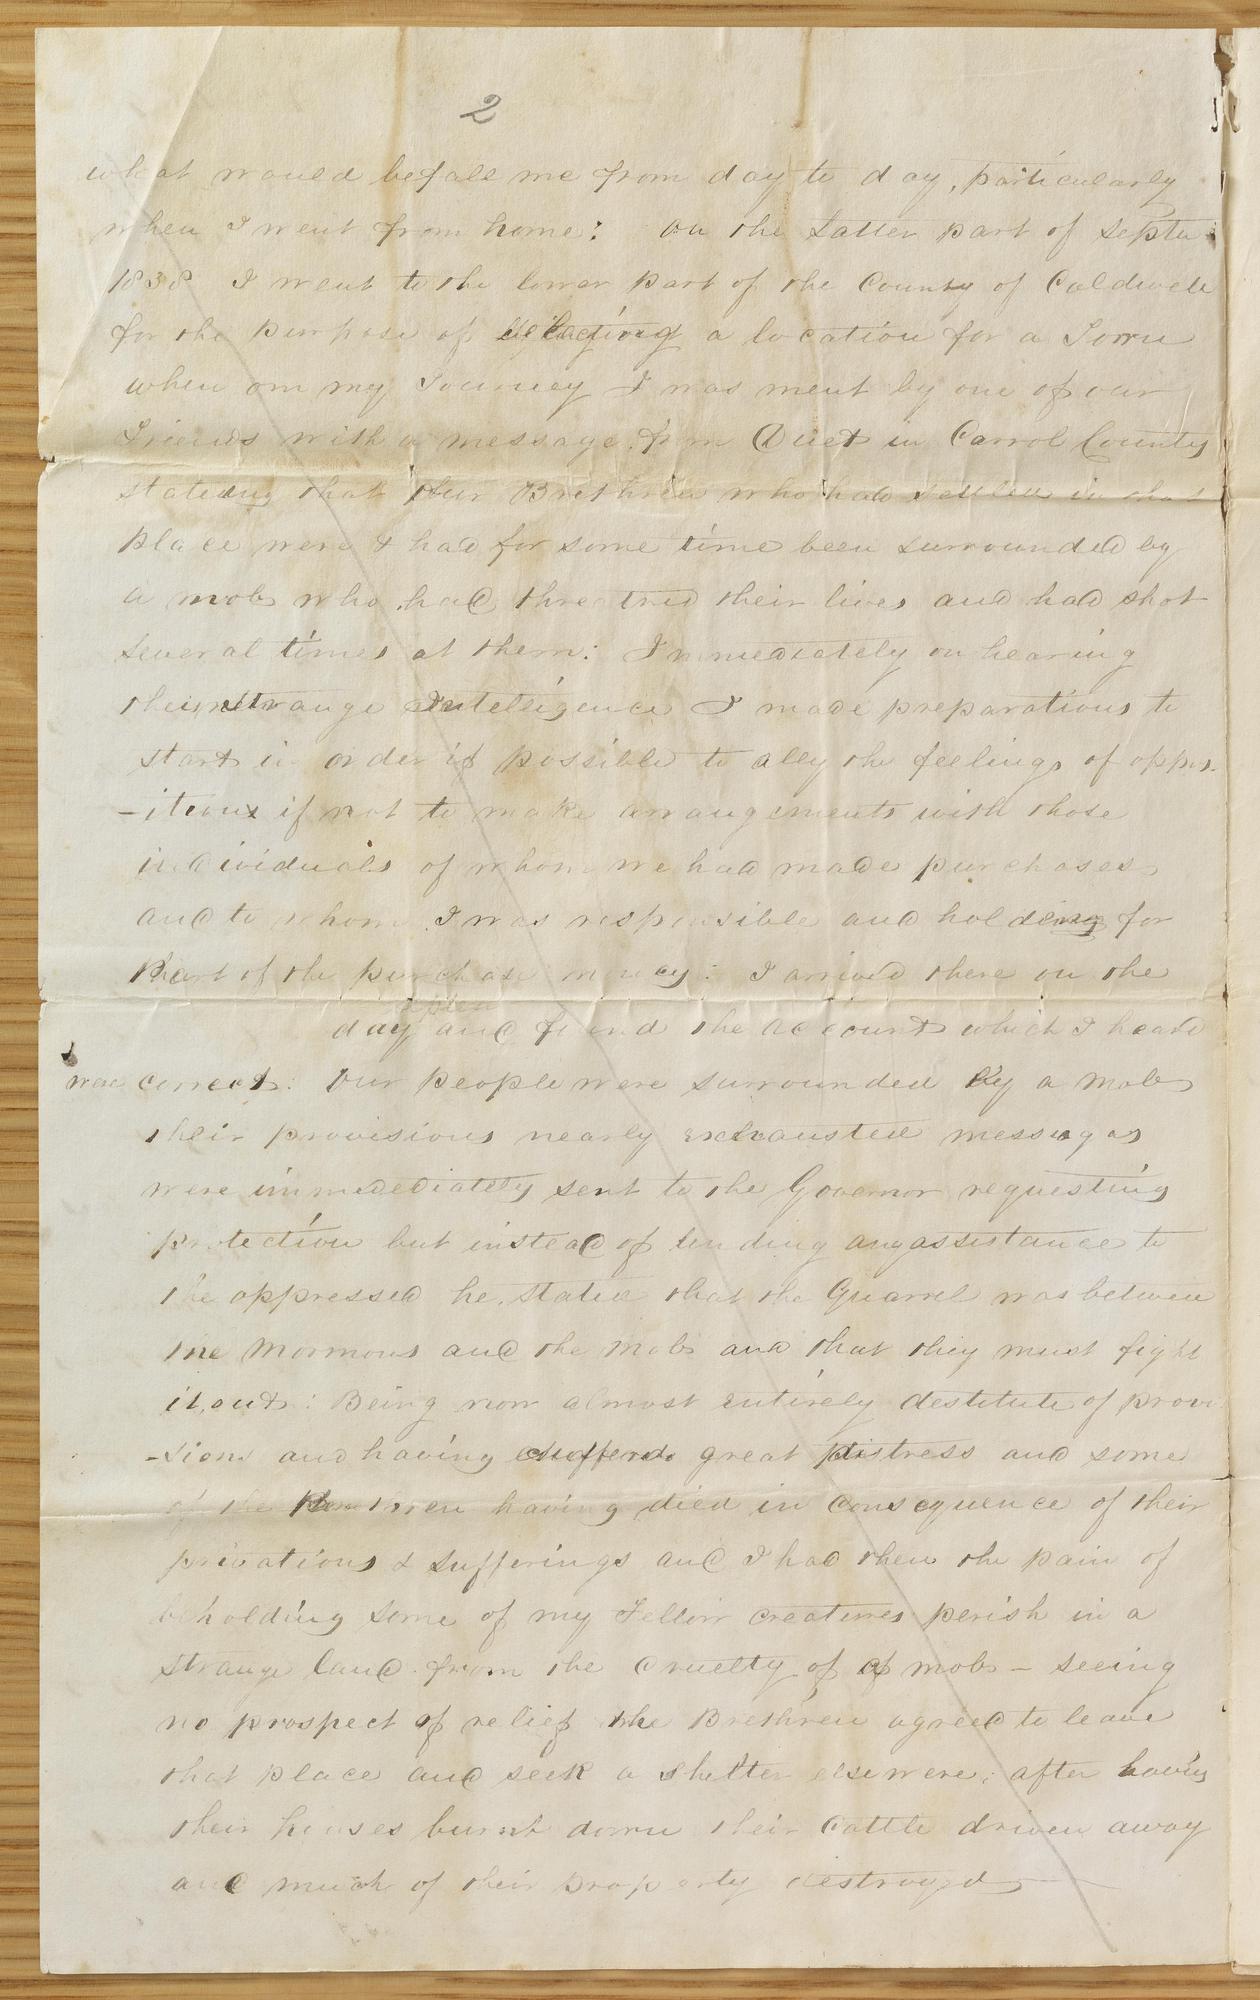 2
what would befall me from day to day, particularly
when I went from home: On the Latter part of Septe
1838 I went to the lower part of the County of Caldwell
for the purpose of selecting a location for a Town
when on my Journey I was ment by one of our
Friends with a message from Duet in Carrol County
stateing that our Brethren who had settled in that
place were & had for some time been surrounded by
a mob who had threatned their lives and had shot
several times at them: Immediately on hearing
this strange Intelligence I made preparations to
start in order if possible to ally the feelings of oppos
-itions if not to make arrangements with those
individuals of whom we had made purchases
and to whom I was responsible and holding for
Part of the purchase money: I arrived there on the
day and found the account which I heard
were correct: Our people were surrounded by a mob
their provisions nearly exhausted messages
were immedediately sent to the Governor requesting
protection but instead of lending any assistance to
the oppressed he stated that the Quarrel was between
the Mormons and the Mob and that they must fight
it out: Being now almost entirely destitute of provi
-sions and having suffered great distress and some
of the Brethren having died in consequence of their
privations & sufferings and I had then the pain of
beholding some of my Fellow creatures perish in a
strange land from the cruelty of a mob - seeing
no prospect of relief the Brethren agreed to leave
that place and seek a shelter elsewere; after having
their houses burnt down their Cattle driven away
and much of their property destroyed